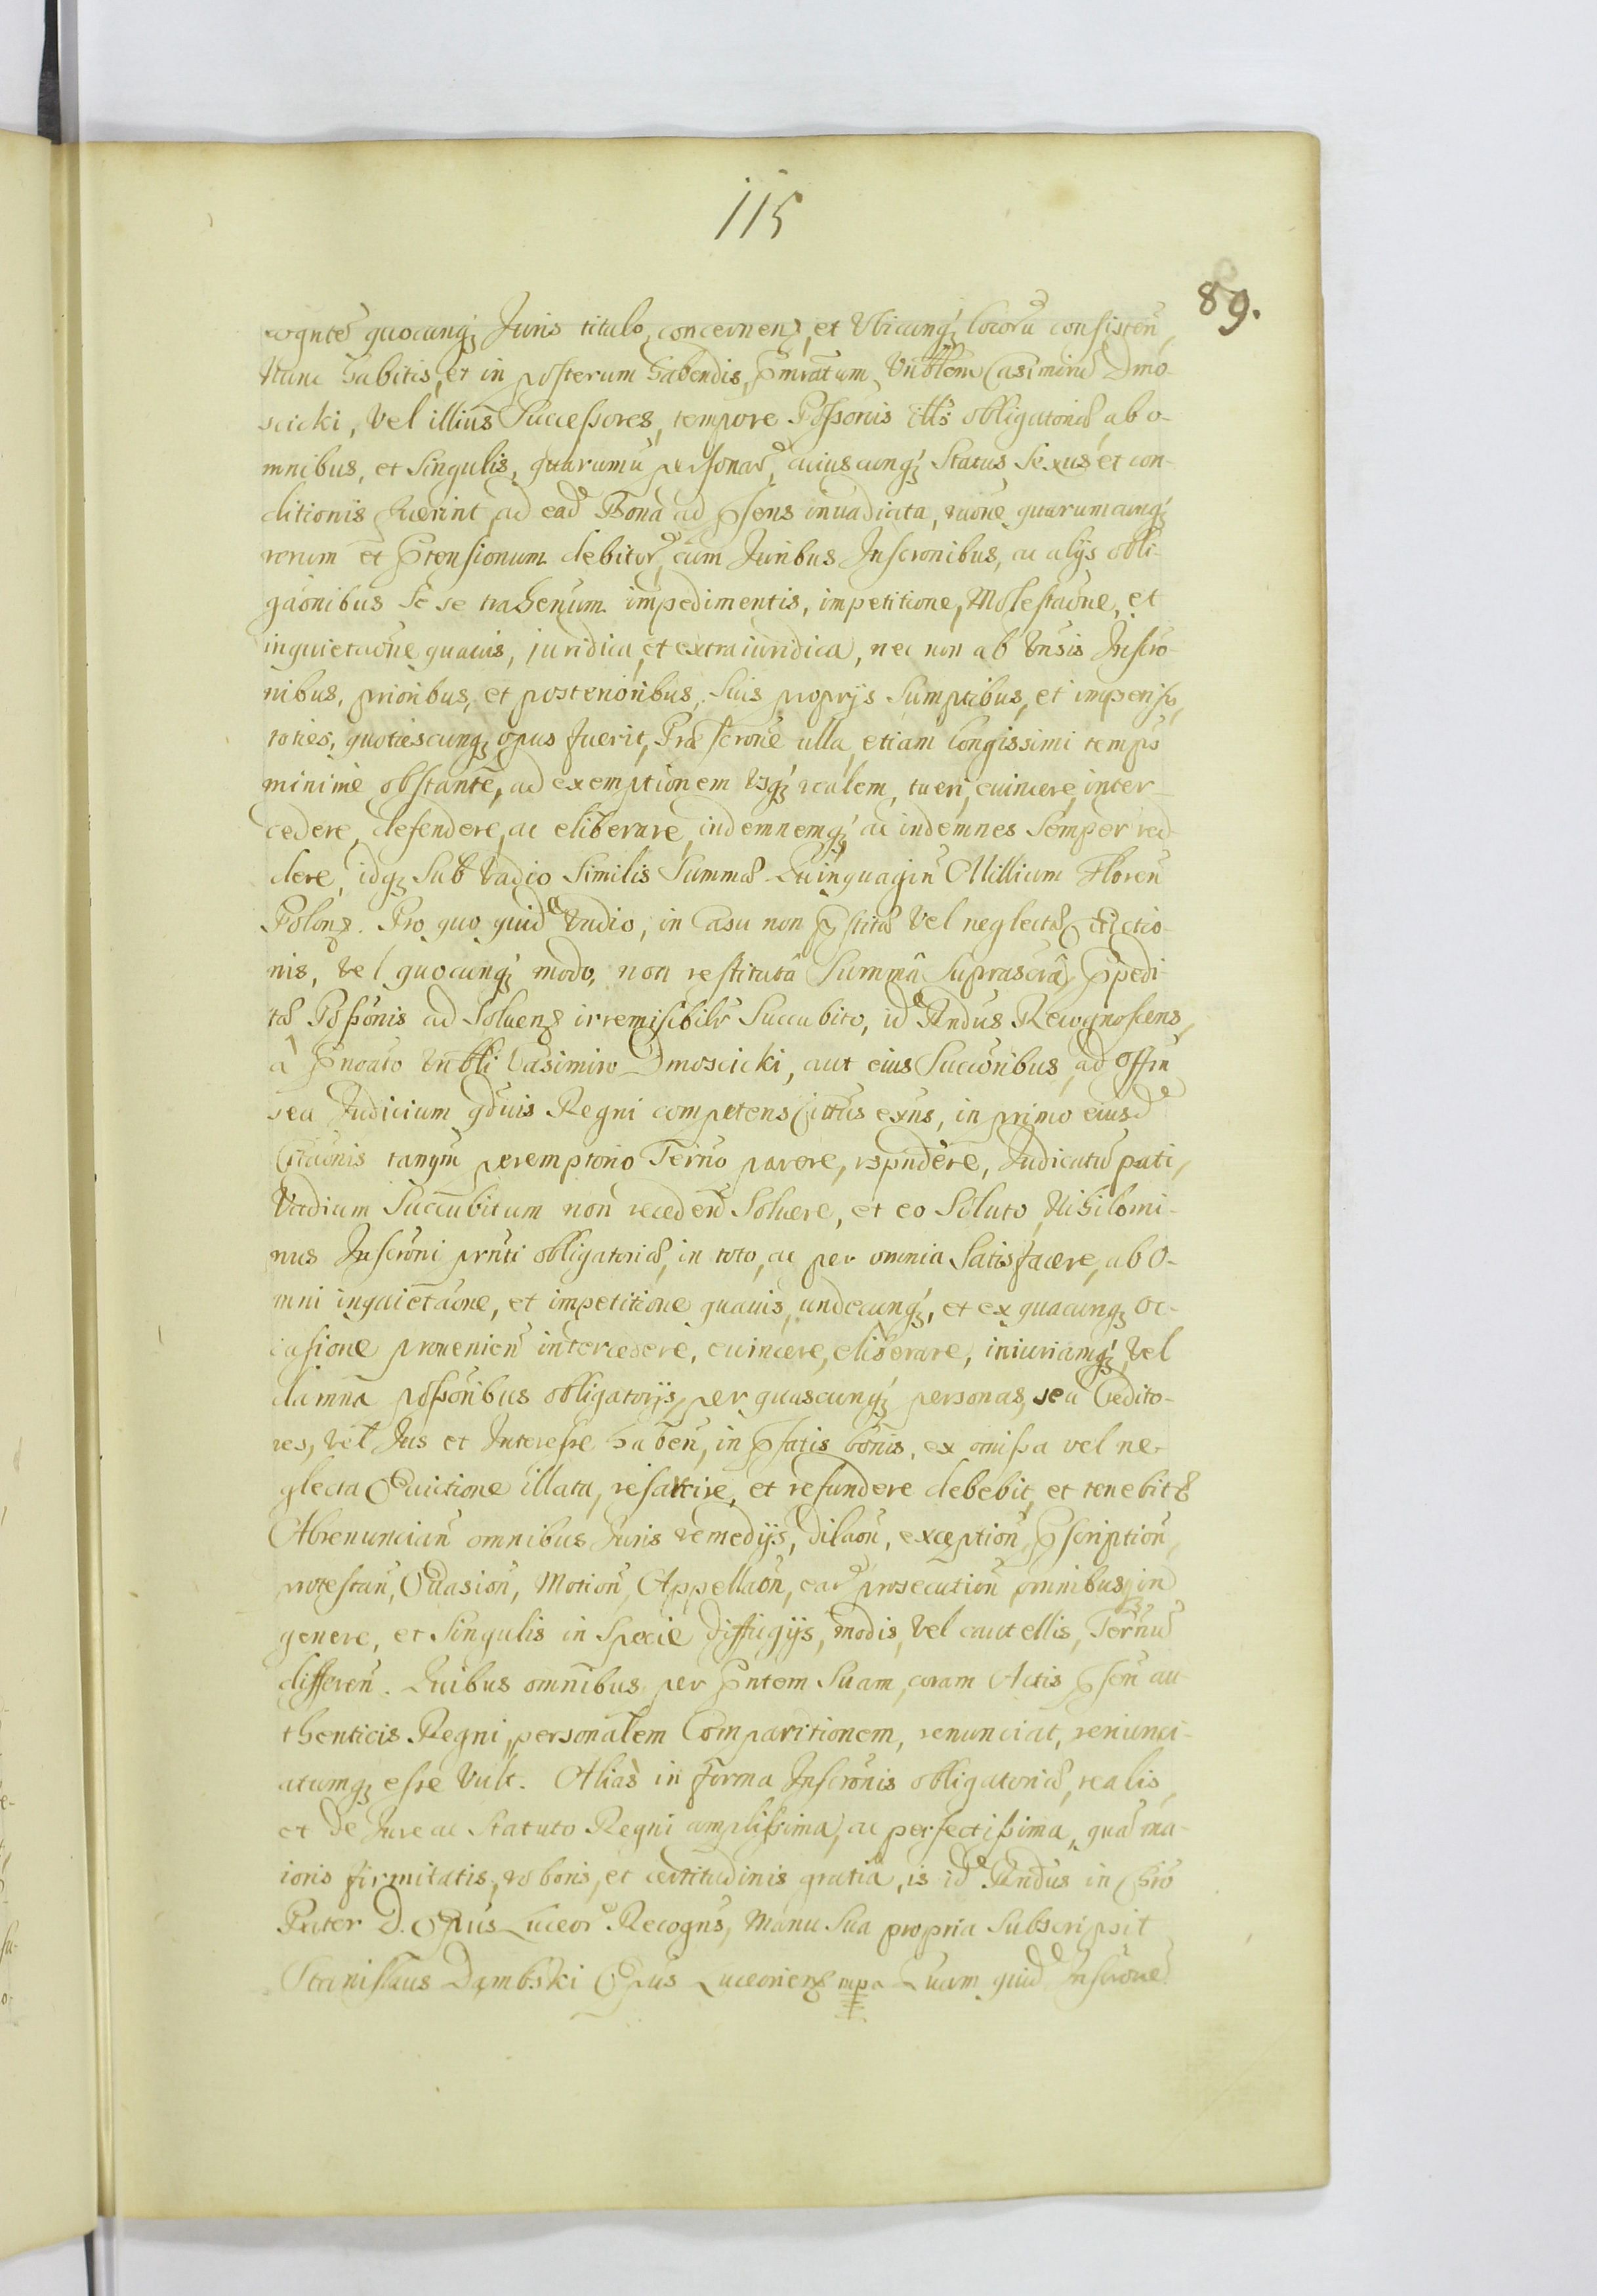 115
89.
cognte quocunq; Juris titulo, concernen, et Ubicunq; locoru consisten,
Nunc habitis, et in posterum habendis, Pmratum Vnblem Casimiru Dmo-
scicki, Vel illius Successores, tempore Possonis illi obligatoriæ, ab o-
mnibus, et Singulis, quarumu personar, cuiuscunq; Status Sexus et con-
ditionis fuerint, ad ead Bona ad Psens inuadiata, raone quarumcunq;
rerum et Ptensionum debitor, cum Juribus Inscronibus, ac alijs obli-
gaonibus Se se trahenum impedimentis, impetitione, Molestaone, et
inquietaone quauis, juridica, et extraiuridica, nec non ab Vnsis Inscro-
nibus, prioribus, et posterioribus, Suis proprijs Sumptibus, et impensis,
toties, quotiescunq; opus fuerit, Præscrone ulla, etiam longissimi temps
minime obstante, ad exemptionem usq; realem, tueri, euincere, inter-
cedere, defendere, ac eliberare, indemnemq; ac indemnes Semper red-
dere, idq; Sub Vadio Similis Summæ Quinquagin Millium Floren
Polon. Pro quo quid Vadio, in Casu non Pstitæ Vel neglectæ Euictio-
nis, Vel quocunq; modo, non restitutâ Summâ Suprascrâ, Ppedi-
tæ Possonis ad Soluen irremisibilr Succubito, id Rndus Recognoscens,
â Pnoato Vnbli Casimiro Dmoscicki, aut eius Succoribus, ad Offm
seu Judicium qduis Regni competens Cittus exns, in primo eiusd
Citaonis tanqm peremptorio Terno parere, rspndere, Judicatu pati,
Vadium Succubitum non receden Soluere, et eo Soluto, Nihilomi-
nus Inscroni prnti obligatoriæ, in toto, ac per omnia Satisfacere, ab O-
mni inquietaone, et impetitione quauis, undecunq;, et ex quacunq; oc-
casione prouenien intercedere, euincere, eliberare, iniuriamq; Vel
damna possoribus obligatorijs, per quascunq; personas, seu Credito-
res, Vel Jus et Interesse haben, in Pfatis bonis, ex omissa vel ne-
glecta Euictione illata, resarcire, et refundere debebit, et tenebitr
Abrenuncian omnibus Juris remedijs, dilaon, exception, Pscription,
protestan, Euasion, Motion, Appellaon, ear prosecution omnibus, in
genere, et Singulis in Specie diffugijs, modis, Vel cautellis, Ternu
differen. Quibus omnibus per Pntem Suam, coram Actis Psen au-
thenticis Regni, personalem Comparitionem, renunciat, renunci-
atumq; esse Vult. Alias in forma Inscronis obligatoriæ, realis,
et De Jure ac Statuto Regni amplissima, ac perfectissima, qua ma-
ioris firmitatis, roboris, et certitudinis gratia, is id Rndus in Chro
Pater D. Epus Luceor Recogns, Manu Sua propria Subscripsit
Stanislaus Dąmbski Epus Luceorien mpa Quam quid Inscrone